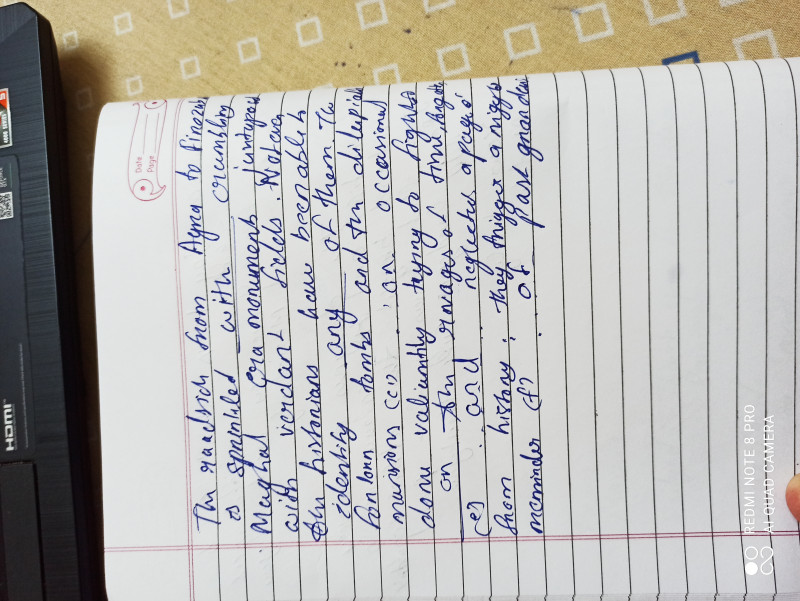 The roadside from Agra to Firozab
is sprinkled with crumbling
Maghal era monument juxtapose
with verdant fields. Not even
the historians have been able to
identify any of them. The
forlorn tombs and the dilapida
mansions (c) . an occasional
dome valiantly trying to fight
on the ravages of time, forgotte
(e) .. and .. neglected, a page
from history; they trigger a niggli
reminder (f) . of past grandeu
Date
Page
HDMI
REDMI NOTE 8 PRO
AI QUAD CAMERA